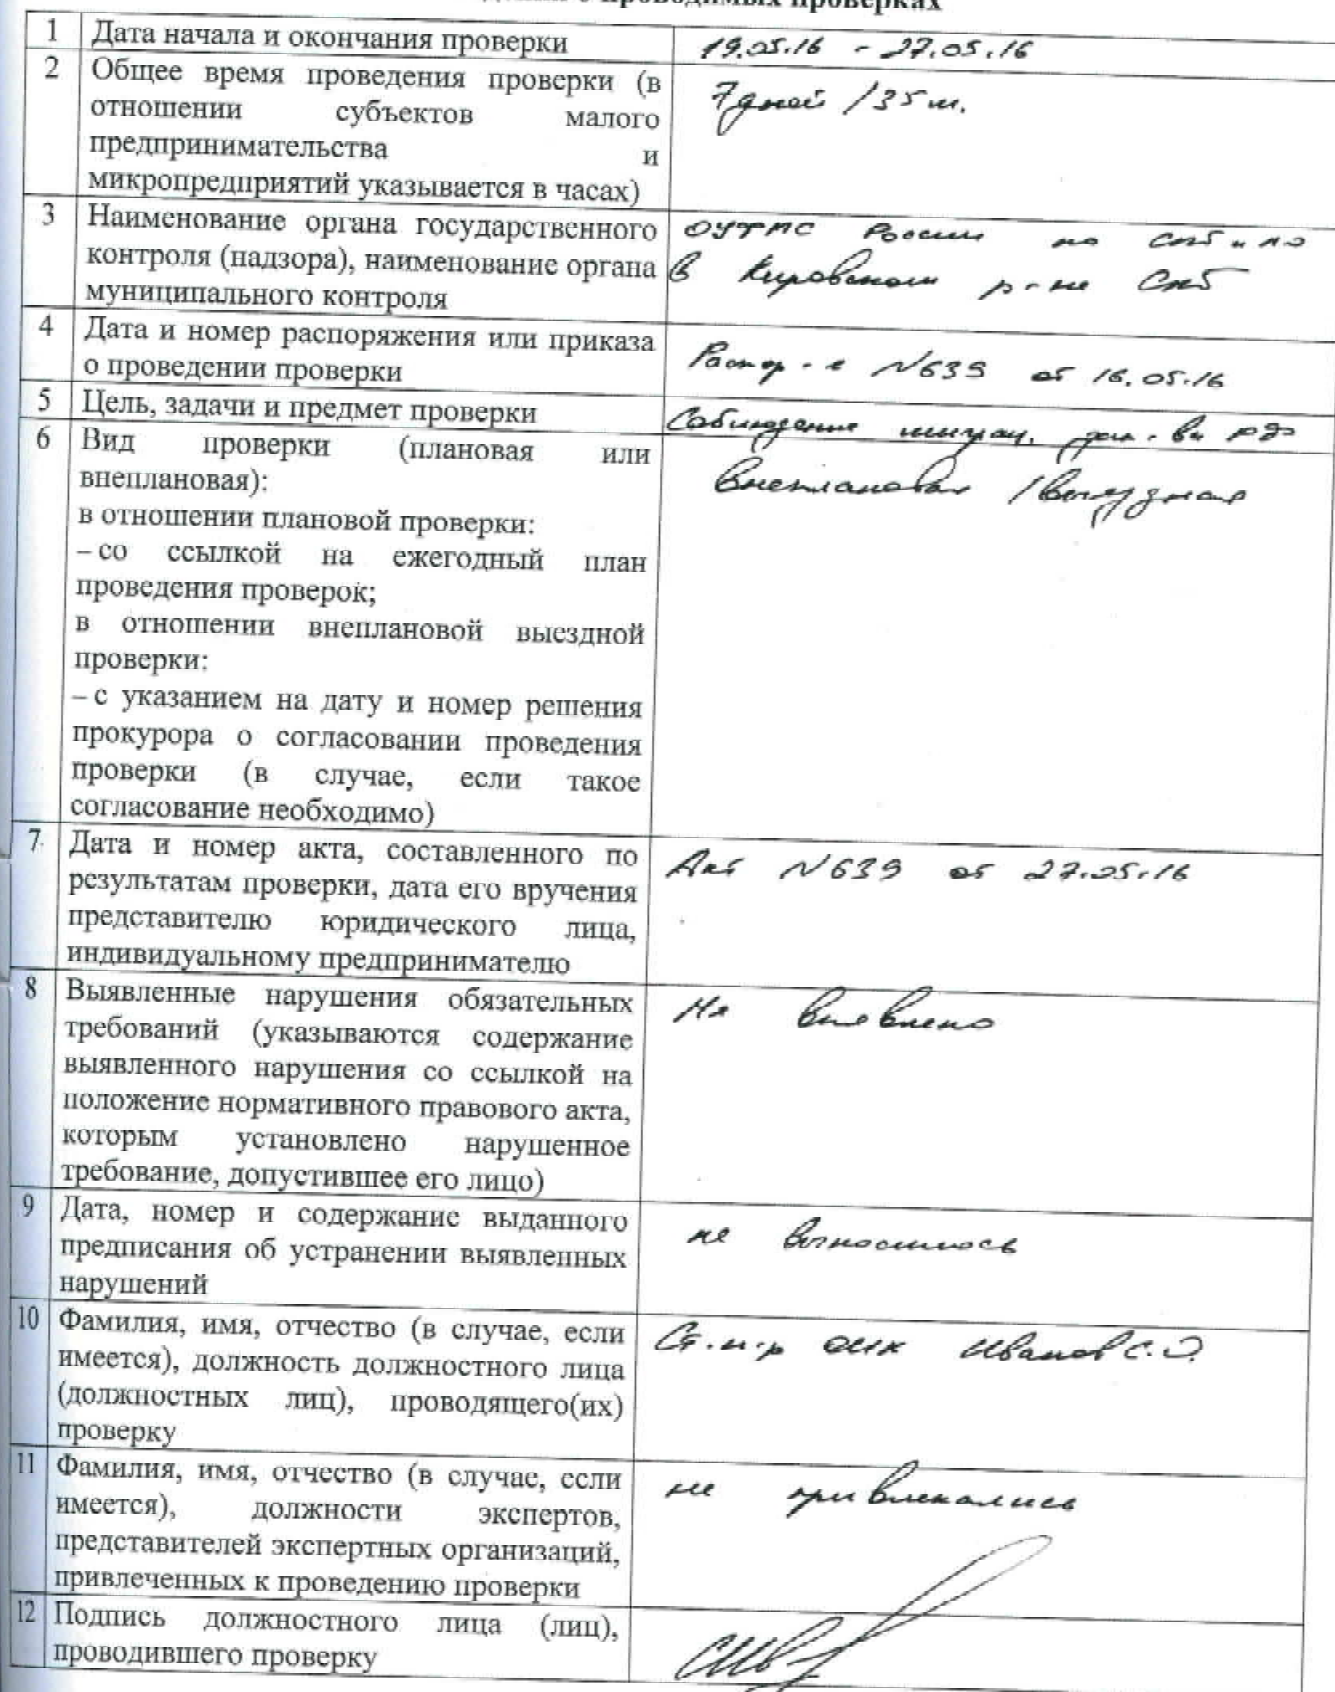 проводимых проверках
1 Дата начала и окончания проверки 19.05.16 - 27.05.16
2 Общее время проведения проверки (в
отношении субъектов малого
предпринимательства и
микропредприятий указывается в часах)
7 дней / 35 ч.
3 Наименование органа государственного
контроля (надзора), наименование органа
муниципального контроля
ОУФМС России по СПб и ЛО
в Кировском р-не СПб
4 Дата и номер распоряжения или приказа
о проведении проверки
Распор-е №639 от 16.05.16
5 Цель, задачи и предмет проверки Соблюдение миграц. зак-ва РФ
6 Вид проверки (плановая или
внеплановая):
в отношении плановой проверки:
– со ссылкой на ежегодный план
проведения проверок;
в отношении внеплановой выездной
проверки:
– с указанием на дату и номер решения
прокурора о согласовании проведения
проверки (в случае, если такое
согласование необходимо)
Внеплановая / выездная
7 Дата и номер акта, составленного по
результатам проверки, дата его вручения
представителю юридического лица,
индивидуальному предпринимателю
Акт №639 от 27.05.16
8 Выявленные нарушения обязательных
требований (указываются содержание
выявленного нарушения со ссылкой на
положение нормативного правового акта,
которым установлено нарушенное
требование, допустившее его лицо)
Не выявлено
9 Дата, номер и содержание выданного
предписания об устранении выявленных
нарушений
не выносилось
10 Фамилия, имя, отчество (в случае, если
имеется), должность должностного лица
(должностных лиц), проводящего(их)
проверку
Ст. и-р ОИК Иванов С.О.
11 Фамилия, имя, отчество (в случае, если
имеется), должности экспертов,
представителей экспертных организаций,
привлеченных к проведению проверки
не привлекались
12 Подпись должностного лица (лиц),
проводившего проверку